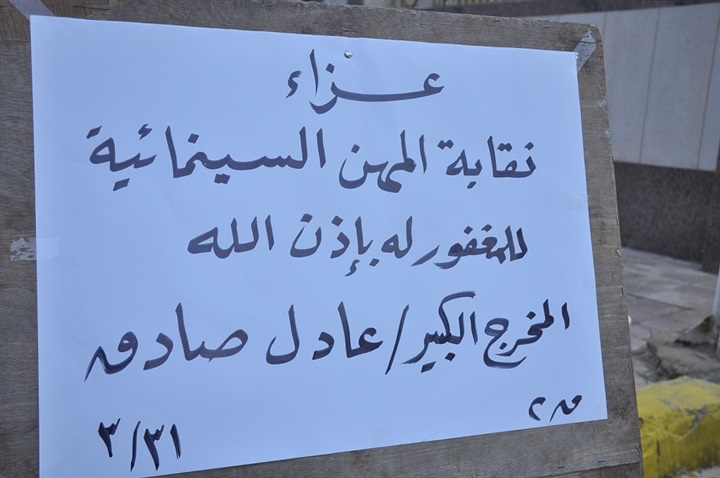 عزاء
نقابة المهن السينمائية
للمغفور له بإذن الله
المخرج الكبير/ عادل صادق
٣/٣١